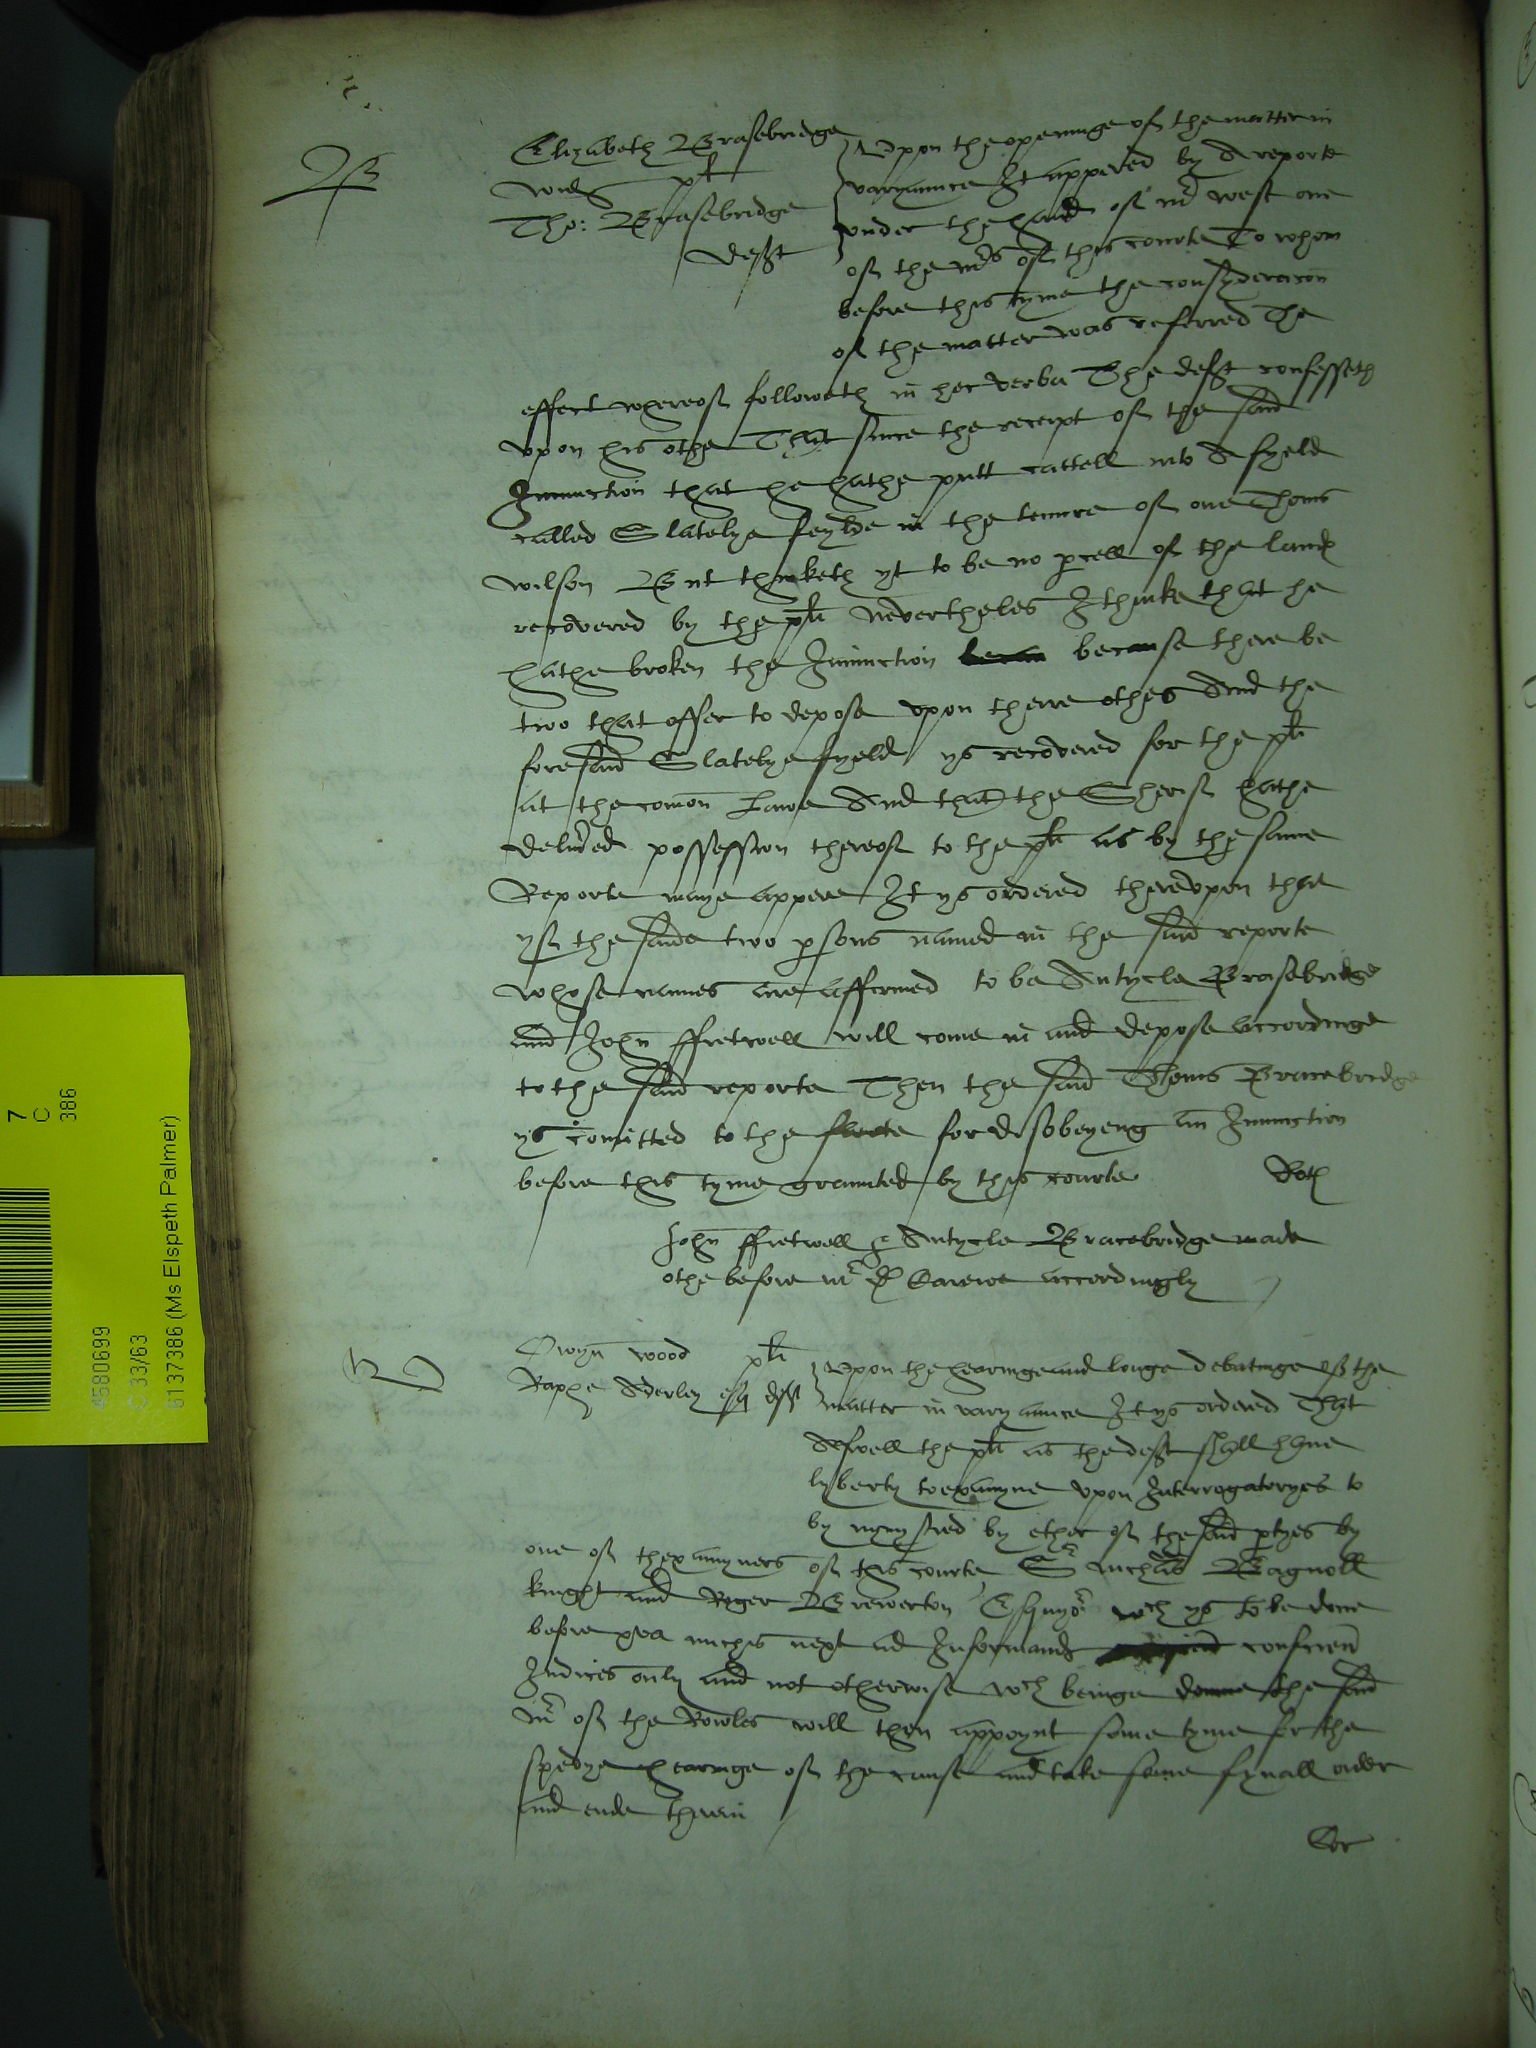 Elizabeth Brasebridge
wid pl
Tho: Brasebridge
deft
Upon the openinge of the matter in
varyaunce It appered by A reporte
under the hand of mr west one
of the mrs of this courte To whom
before this tyme the consyderacon
of the matter was referred The
effect whereof followeth in hec verba The deft confesseth
upon his othe That since the receipt of the said
Iniunction that he hathe putt cattell into A fyeld
called Slatelye feylde in the tenure of one Thoms
wilson But thinketh yt to be no pcell of the land
recovered by the pl nevertheles I thinke that he
hathe broken the Iniunction because there be
two that offer to depose upon there othes And the
foresaid Slatelye fyeld ys recovered for the pl
at the comon Lawe And that the Sherif hathe
delivred possession thereof to the pl as by the same
Reporte maye appere It ys ordered thereupon that
yf the saide two psons named in the said reporte
whose names are affirmed to be Antycle Brasebridge
and John ffretwell will come in and depose accordinge
to the said reporte Then the said Thoms Bracebridge
ys comitted to the fleete for disobeyeng an Iniunction
before this tyme graunted by this courte
John ffretwell & Antycle Bracebridge made
othe before mr Carewe accordingly
Owyn wood pl
Raphe Aderley esq deft
Upon the hearinge and longe debatinge of the
matter in varyaunce It ys ordered That
Aswell the pl as the deft shall have
lyberty to examyne upon Interrogatoryes to
by mynystred by ether of the said ptyes by
one of thexamyners of this courte Sr nichas Bagnoll
knight and Roger Brewerton Esquyor wch ys to be done
before xva michis next ad Informand conscien
Iudices only and not otherwise wch beinge donne the said
mr of the Rowles will then appoynt some tyme for the
spedye hearinge of the cause and take some fynall order
and ende therin